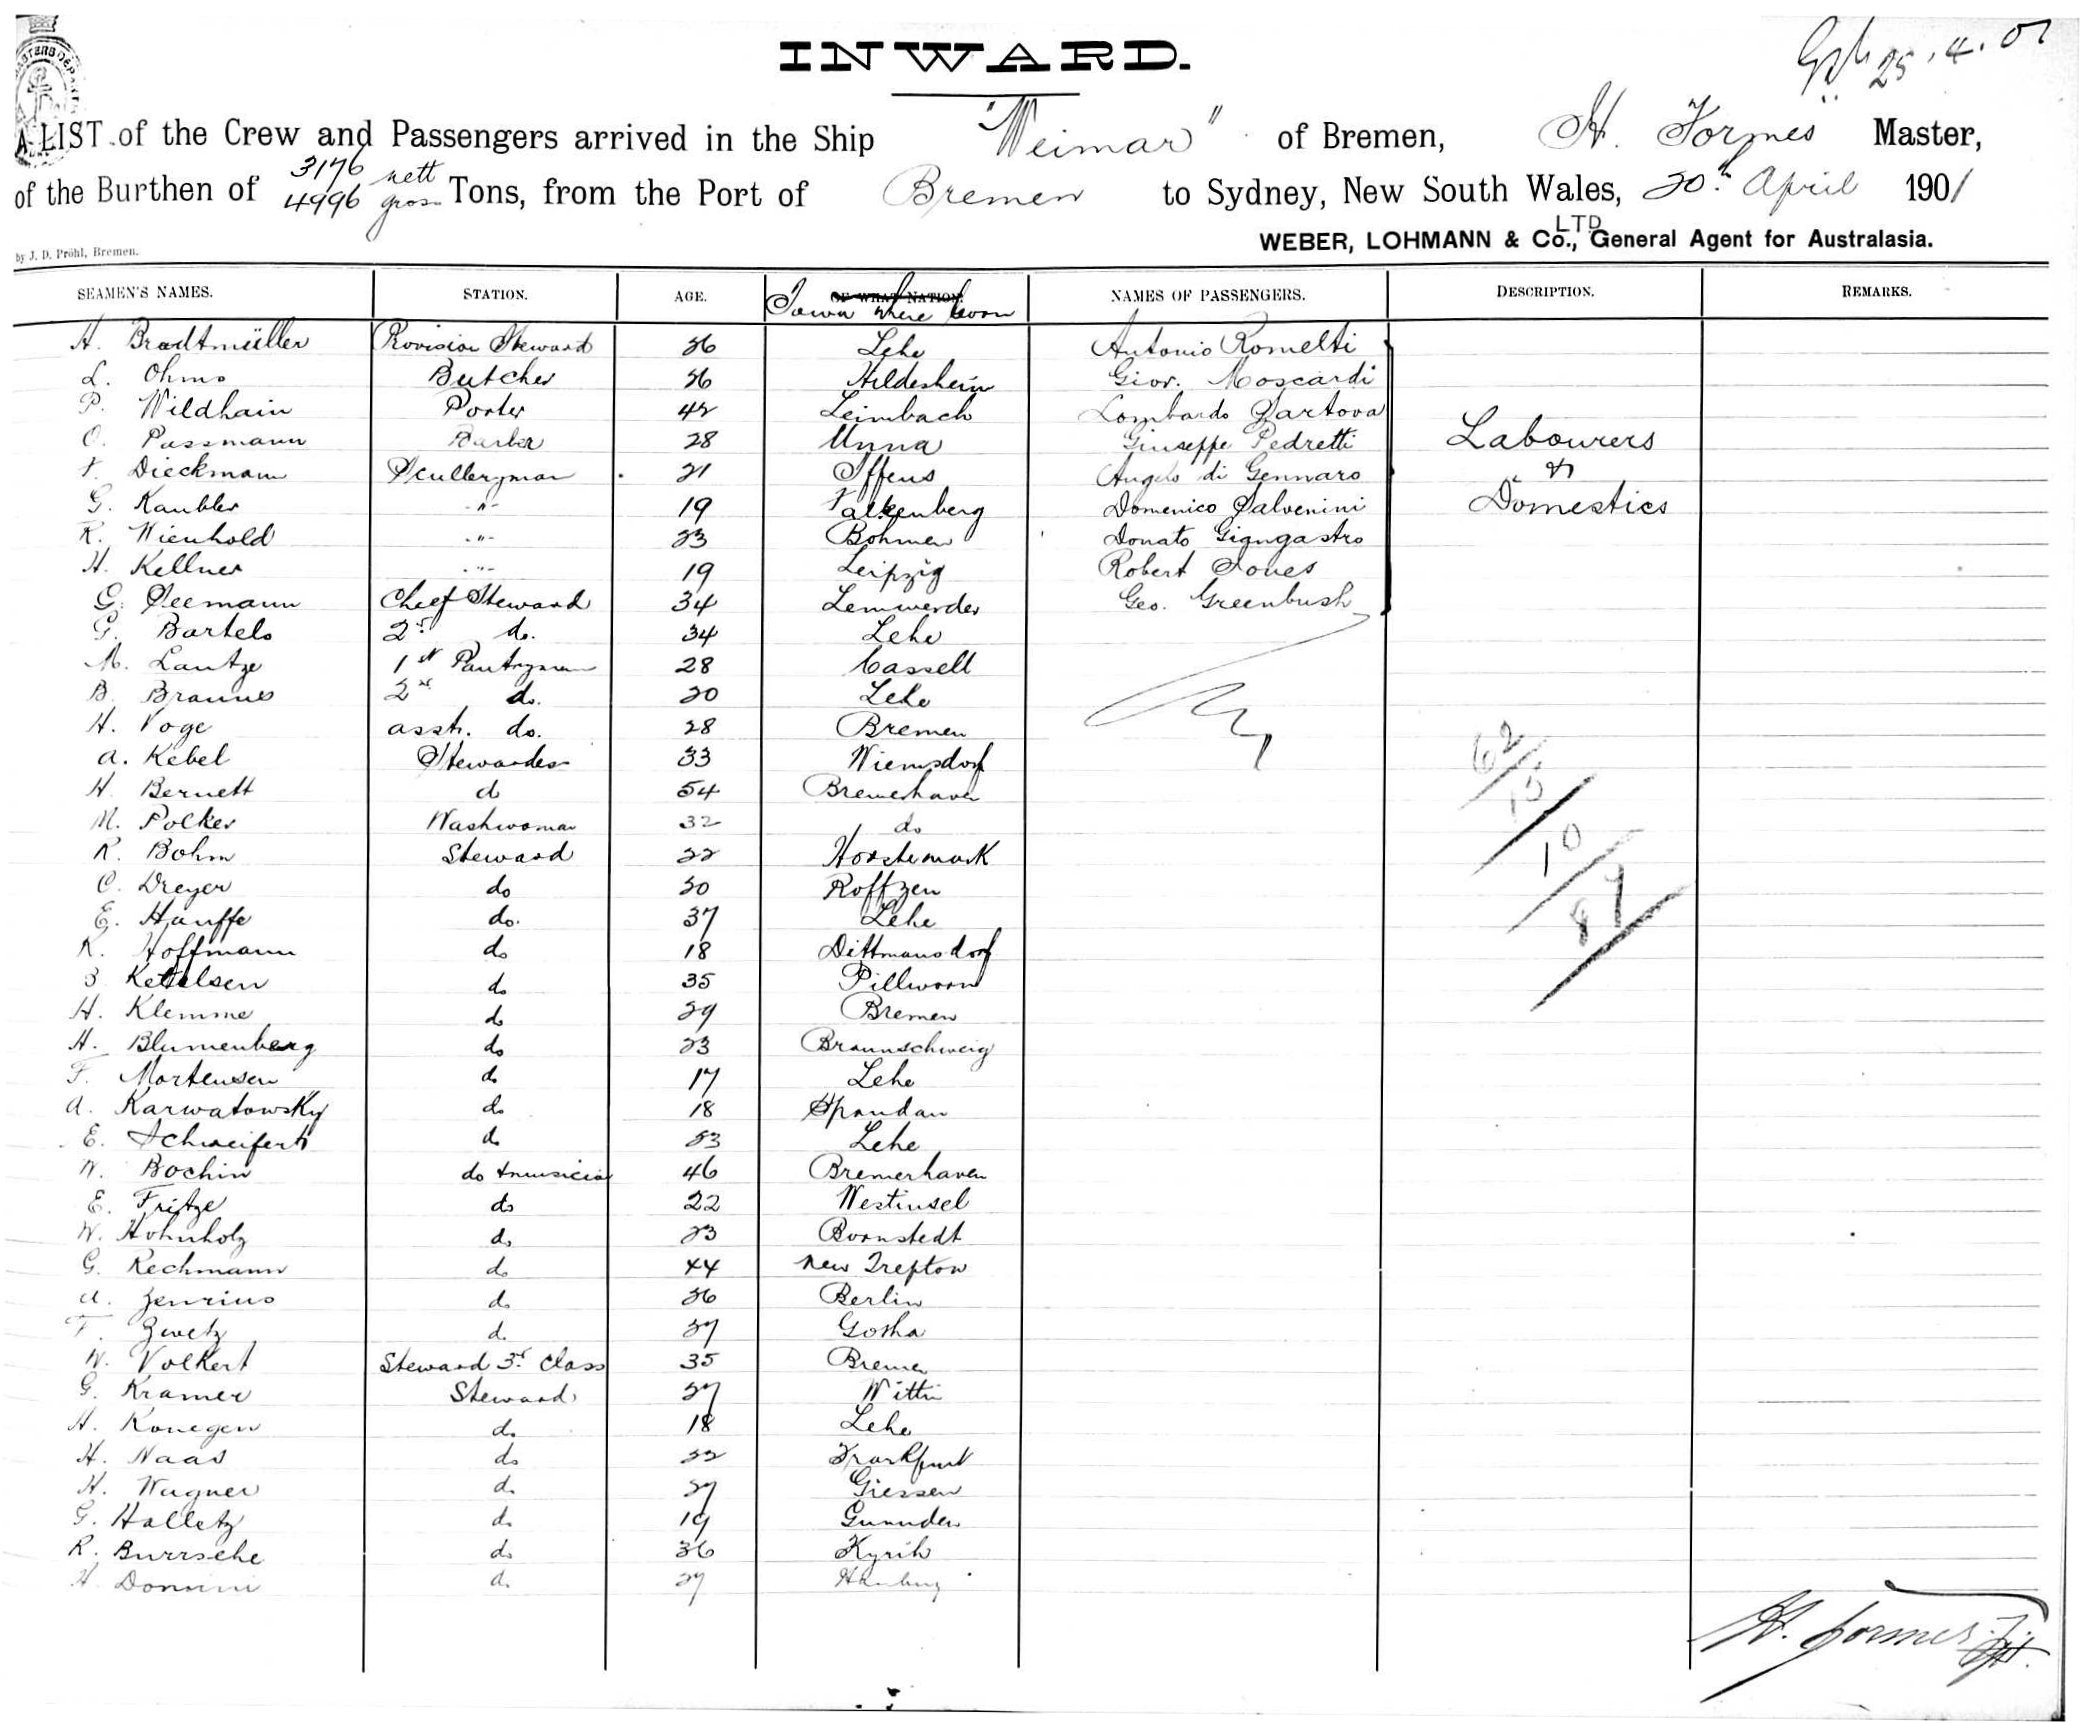 INWARD.
25.4.01
A LIST of the Crew and Passengers arrived in the Ship "Weimar" of Bremen, H. Formes Master,
of the Burthen of 3176 nett 4996 gross Tons, from the Port of Bremen to Sydney, New South Wales, 20th April 1901
WEBER, LOHMANN & Co., LTD General Agent for Australasia.
by J. D. Pröhl, Bremen.
SEAMEN'S NAMES. STATION. AGE. OF WHAT NATION. NAMES OF PASSENGERS. DESCRIPTION. REMARKS.
Town where born
H. Bradtmüller Provision Steward 36 Lehe Antonio Romelti
L. Ohms Butcher 26 Hildesheim Giov. Moscardi
P. Wildhain Porter 42 Leimbach Lombardo Sartova
O. Passmann Barber 28 Unna Giuseppe Pedretti Labourers
F. Dieckmann Sculleryman 21 Iffens Angelo di Gennaro &
G. Kaubler -"- 19 Falkenberg Domenico Salvenini Domestics
R. Wienhold -"- 23 Bohmen Donato Giangastro
H. Kellner -"- 19 Leipzig Robert Jones
G. Seemann Cheef Steward 34 Lemwerder Geo. Greenbush
G. Bartels 2d do. 34 Lehe
M. Lantze 1st Pantryman 28 Cassell
B. Brauns 2nd do. 20 Lehe
H. Voge asst. do. 28 Bremen
A. Kebel Stewardess 33 Wiemsdorf
H. Bernett do 54 Bremerhaven
M. Polker Washwoman 32 do
R. Bohm Steward 22 Horstemark
C. Dreyer do 20 Roffzen
E. Hauffe do. 37 Lehe
K. Hoffmann do 18 Dittmansdorf
B Kettelsen do 35 Pillworm
H. Klemme do 29 Bremen
H. Blumenberg do 23 Braunschweig
F. Mortensen do 17 Lehe
A. Karwatowsky do 18 Spandau
E. Schweifert do 23 Lehe
W. Bochin do & musician 46 Bremerhaven
E. Fritze do 22 Westinsel
W. Hohnholz do 23 Bornstedt
G. Rechmann do 44 New Trepton
A. Zenrius do 26 Berlin
F. Zwetz do 27 Gotha
W. Volkert Steward 3d Class 35 Bremen
G. Kramer Steward 27 Witti
H. Konegen do 18 Lehe
H. Naas do 22 Frankfurt
H. Wagner do 27 Giessen
G. Halletz do 19 Gmunden
R. Burrsche do 36 Kyrih
H. do 27 Hamburg
62
15
10
87
H. Formes